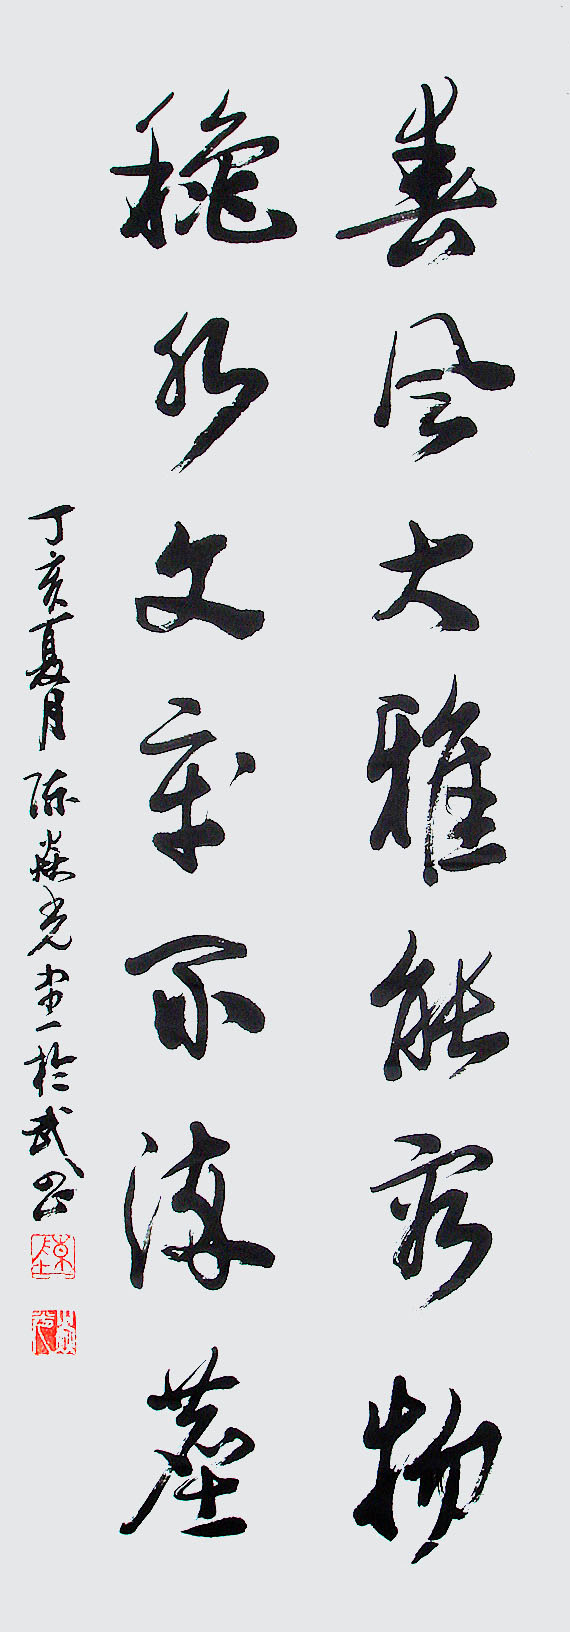 春风大雅能容物
秋水文章不染尘
丁亥夏月陈焱光书于武昌